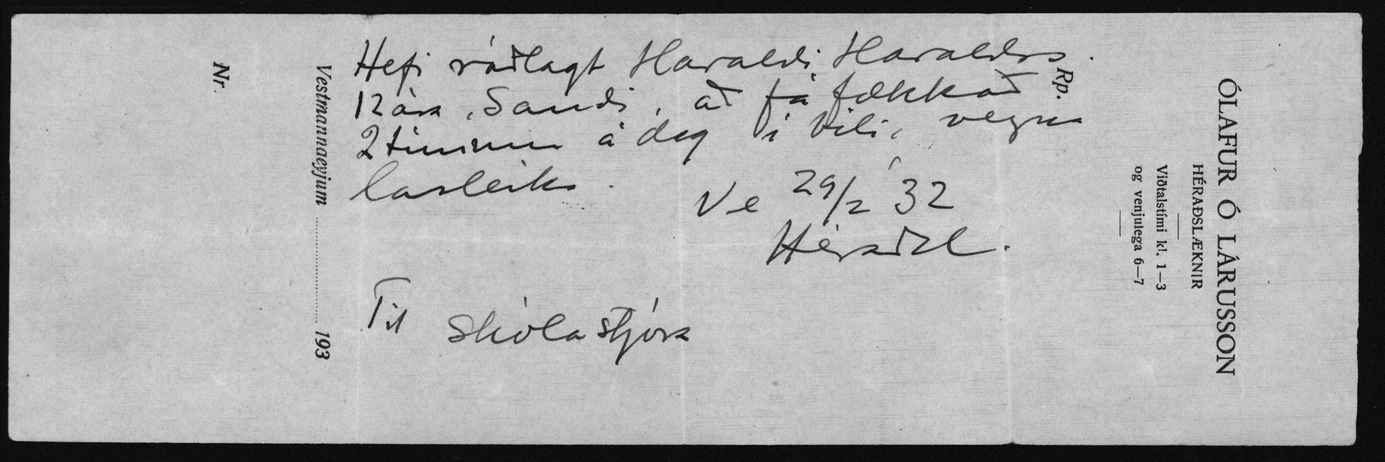 ÓLAFUR Ó LÁRUSSON
HÉRAÐSLÆKNIR
Viðtalstími kl. 1—3
og venjulega 6—7
Rp.
Hefi ráðlagt Haraldi Haralds.
12 ára, Sandi, að fá fækkað
2 tímum á dag í bili, vegna
lasleika.
Ve 29/2 '32
Héraðsl.
Til skólastjóra
Vestmannaeyjum 193
Nr.